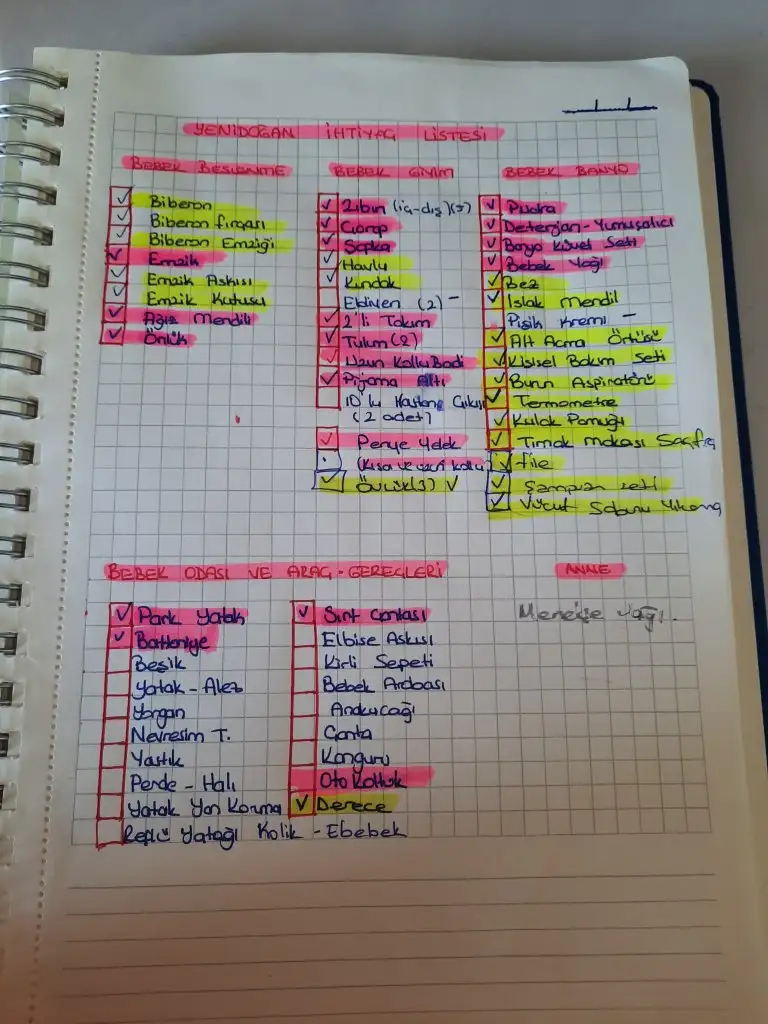 YENİDOĞAN İHTİYAÇ LİSTESİ
BEBEK BESLENME
Biberon
Biberon fırçası
Biberon Emziği
Emzik
Emzik Askısı
Emzik Kutusu
Ağız Mendili
Önlük
BEBEK GİYİM
Zıbın (iç-dış)
Çorap
Şapka
Havlu
Kundak
Eldiven (2) -
2'li Takım
Tulum (2)
Uzun Kollu Badi
Pijama Altı
10'lu Hastane Çıkışı
(2 adet)
Penye Yelek
(Kısa ve uzun kollu)
Önlük(3) V
BEBEK BANYO
Pudra
Deterjan-Yumuşatıcı
Banyo Küvet Seti
Bebek Yağı
Bez
Islak Mendil
Pişik Kremi -
Alt Açma Örtüsü
Kişisel Bakım Seti
Burun Aspiratörü
Termometre
Kulak Pamuğı
Tırnak Makası
file
Şampuan seti
Vücut Sabunu
BEBEK ODASI VE ARAÇ-GEREÇLERİ
Park Yatak
Battaniye
Beşik
Yatak - Alez
Yorgan
Nevresim T.
Yastık
Perde - Halı
Yatak Yan Koruma
Yatağı Kolik - Ebebek
Sırt Çantası
Elbise Askısı
Kirli Sepeti
Bebek Arabası
Anakucağı
Çanta
Kanguru
Oto Koltuk
Derece
ANNE
Menekşe Yağı.